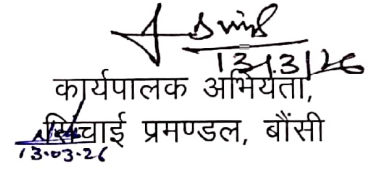 13/3/26
कार्यपालक अभियंता,
सिंचाई प्रमण्डल, बौंसी
13.03.26